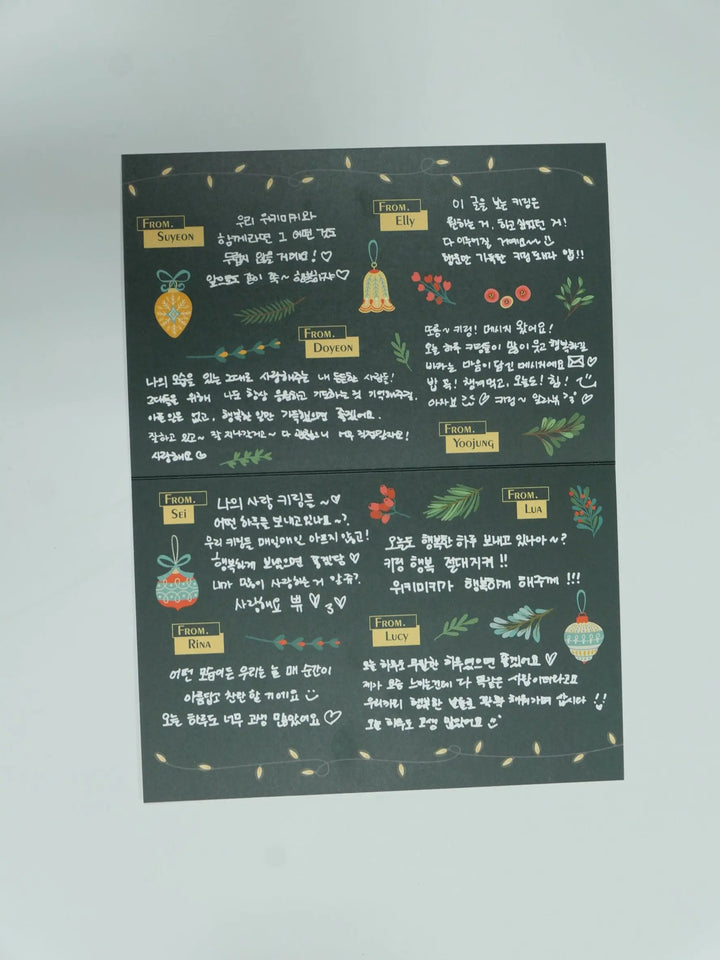 FROM.
SUYEON
우리 위키미키와
함께라면 그 어떤 것도
두렵지 않을 거예요! ♡
앞으로도 같이 쭉~ 함께하자♡
FROM.
Elly
이 글을 보는 키링은
원하는 거, 하고싶었던 거!
다 이루어질 거예요~~
행운만 가득한 키링 돼라 얍!!
FROM.
DOYEON
나의 모습을 있는 그대로 사랑해주는 내 든든한 사람들!
그대들을 위해 나도 항상 응원하고 기도하는 것 기억해주길.
아픈 일은 없고, 행복한 일만 가득했으면 좋겠어요.
잘하고 있고~ 잘 지나갈거고~ 다 괜찮으니 너무 걱정말아요!
사랑해요
또롱~ 키링! 메시지 왔어요!
오늘 하루 키링들이 많이 웃고 행복하길
바라는 마음이 담긴 메시지예요 ♡
밥 꼭! 챙겨먹고, 오늘도! 힘!
아자뵤 ♡ 키링~ 알라뷰 ♡
FROM.
YOOJUNG
FROM.
SEI
나의 사랑 키링들 ~♡
어떤 하루를 보내고 있나요~?
우리 키링들 매일매일 아프지 않고!
행복하게 보냈으면 좋겠당 ♡
내가 많이 사랑하는 거 알죠?
사랑해요 쀼 ♡ 3♡
FROM.
LUA
오늘도 행복한 하루 보내고 있나아~?
키링 행복 절대지켜!!
위키미키가 행복하게 해줄게!!!
FROM.
RINA
어떤 모습이든 우리는 늘 매 순간이
아름답고 찬란할 거예요
오늘 하루도 너무 고생 많았어요 ♡
FROM.
LUCY
오늘 하루도 무탈한 하루였으면 좋겠어요 ♡
제가 요즘 느끼는건데 다 똑같은 사람이더라고요
우리끼리 행복한 날들로 꽉꽉 채워가며 삽시다 !!
오늘 하루도 고생 많았어요